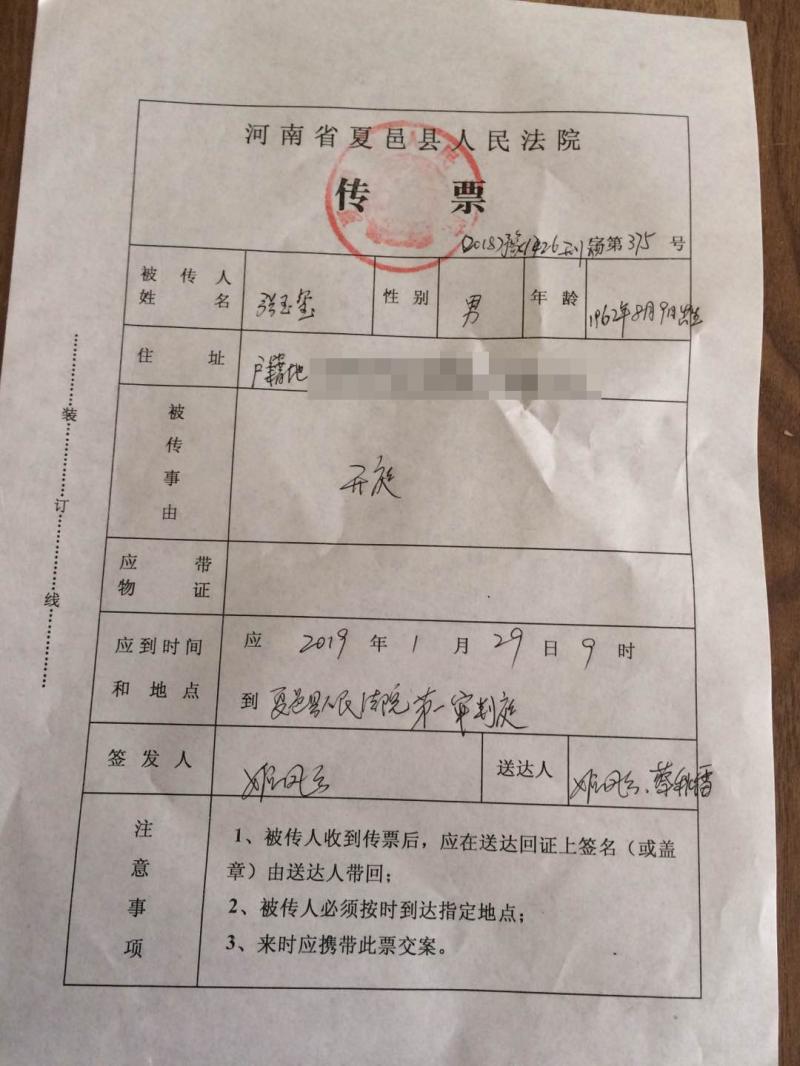 河南省夏邑县人民法院
传 票
(2018)豫1426刑初第375号
被传人姓名 张玉玺 性别 男 年龄 1962年8月9日出生
住址 户籍地
被传事由 开庭
应带物证
应到时间和地点 应 2019 年 1 月 29 日 9 时
到 夏邑县人民法院第一审判庭
签发人 姬风云 送达人 姬风云、
注意事项
1、被传人收到传票后，应在送达回证上签名（或盖
章）由送达人带回；
2、被传人必须按时到达指定地点；
3、来时应携带此票交案。
装订线